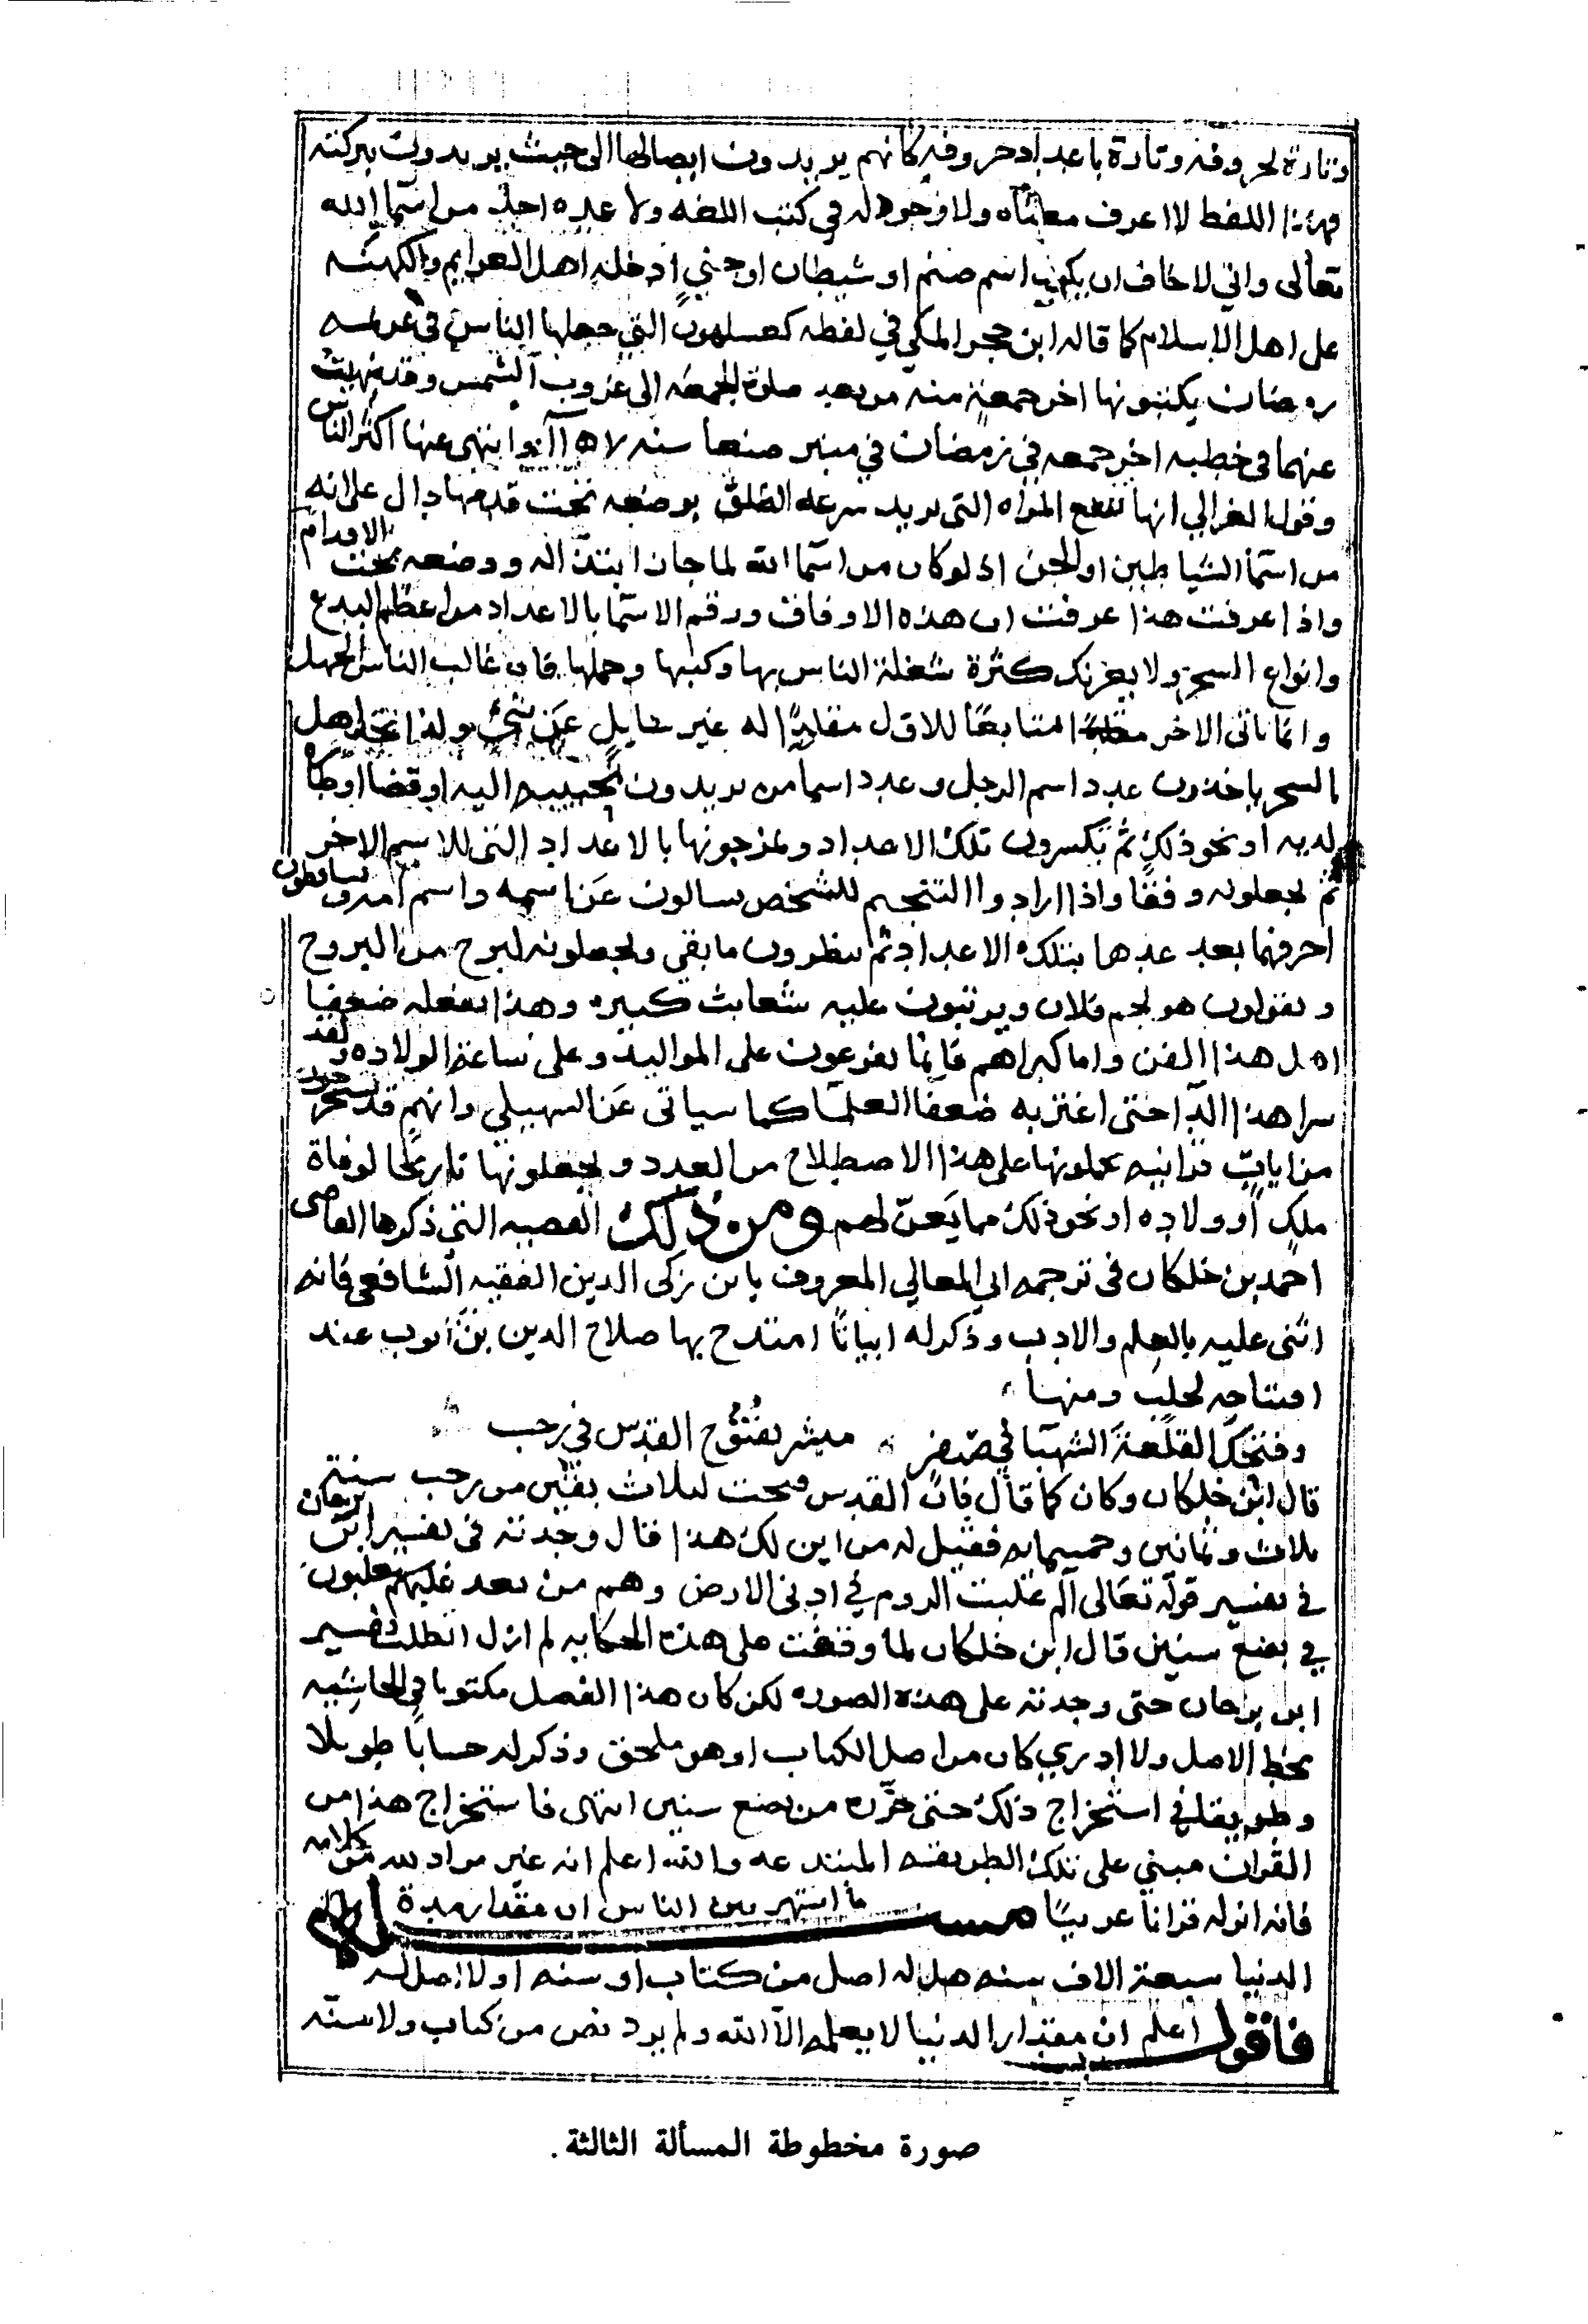 وتارة لحروفه وتارة باعداد حروفه كانهم يريدون ايصالها الى حيث يريدون ببركته
فهذا اللفظ لا اعرف معناه ولا وجود له في كتب اللغه ولا عده احد من اسما الله
تعالى واني لاخاف ان يكون اسم صنم او شيطان او جني ادخله اهل العزايم والكهنه
على اهل الاسلام كما قاله ابن حجر المكي في لفظه كعسلهون التي جعلها الناس في
رمضان يكتبونها اخر جمعة منه من بعد صلوة الجمعه الى غروب الشمس وقد نهيت
عنهما في خطبه اخر جمعه في رمضان في منبر صنعا سنه وانتهى عنها اكثر الناس
وقول الغزالي انها تنفع المراه التي تريد سرعه الطلق بوضعه تحت قدمها دال على انه
من اسما الشياطين او الجن اذ لو كان من اسما الله لما جاز ابتذاله ووضعه تحت الاقدام
واذا عرفت هذا عرفت ان هذه الاوفاق ورقم الاسما بالاعداد من اعظم البدع
وانواع السحر ولا يغرنك كثرة شغلة الناس بها وكتبها وحملها فان غالب الناس الجهل
وانما ياتى الاخر متابعًا للاول مقلدًا له غير سايل عن شئ ولذا تجد اهل
السحر ياخذون عدد اسم الرجل وعدد اسما من يريدون تحبيبه اليه او قضا اوطاره
لديه او نحو ذلك ثم يكسرون تلك الاعداد ويمزجونها بالاعداد التي للاسم الاخر
ثم يجعلونه وفقًا واذا ارادوا التنجيم للشخص يسالون عن اسمه واسم امه ويساقطون
احرفهما بعد عدها بتلك الاعداد ثم ينظرون ما بقي ويجعلونه لبرج من البروج
ويقولون هو نجم فلان ويرتبون عليه كبيره وهذا يفعله ضعفا
اهل هذا الفن واما كبراهم فانما يفزعون على المواليد وعلى ساعة الولاده ولقد
سرا هذا الدا حتى اغتر به ضعفا العلما كما سياتى عن السهيلي وانهم قد
من ايات قرانيه يحملونها على هذا الاصطلاح من العدد ويجعلونها تاريخًا لوفاة
ملك او ولاده او نحو ذلك مما يعن لهم ومن ذلك القصيه التي ذكرها القاضى
احمد بن خلكان في ترجمه ابي المعالي المعروف بابن زكى الدين الفقيه الشافعي فانه
اثنى عليه بالعلم والادب وذكر له ابياتًا امتدح بها صلاح الدين بن ايوب عند
افتتاحه لحلب ومنها
وفتحك القلعة الشهبا في صفر مبشر بفتوح القدس في رجب
قال ابن خلكان وكان كما قال فان القدس فتحت لثلاث بقين من رجب سنة
ثلاث وثمانين وخمسمايه فقيل له من اين لك هذا فقال وجدته في تفسير ابن برجان
في تفسير قوله تعالى الم غلبت الروم في ادنى الارض وهم من بعد غلبهم سيغلبون
في بضع سنين قال ابن خلكان لما وقفت على هذه الحكايه لم ازل اتطلب تفسير
ابن برجان حتى وجدته على هذه الصوره لكن كان هذا الفصل مكتوبا في الحاشيه
بخط الاصل ولا ادري كان من اصل الكتاب او هو ملحق وذكر له حسابًا طويلا
وطريقا في استخراج ذلك حتى حرره من بضع سنين انتهى فاستخراج هذا من
القران مبني على تلك الطريقه المبتدعه والله اعلم انه غير مراد لله من كلامه
فانه انزله قرانًا عربيًا مسئلة ما اشتهر بين الناس ان مقدار مدة
الدنيا سبعة الاف سنه هل له اصل من كتاب او سنه او لا اصل له
فاقول اعلم ان مقدار الدنيا لا يعلمه الا الله ولم يرد نص من كتاب ولا سنه
صورة مخطوطة المسألة الثالثة.